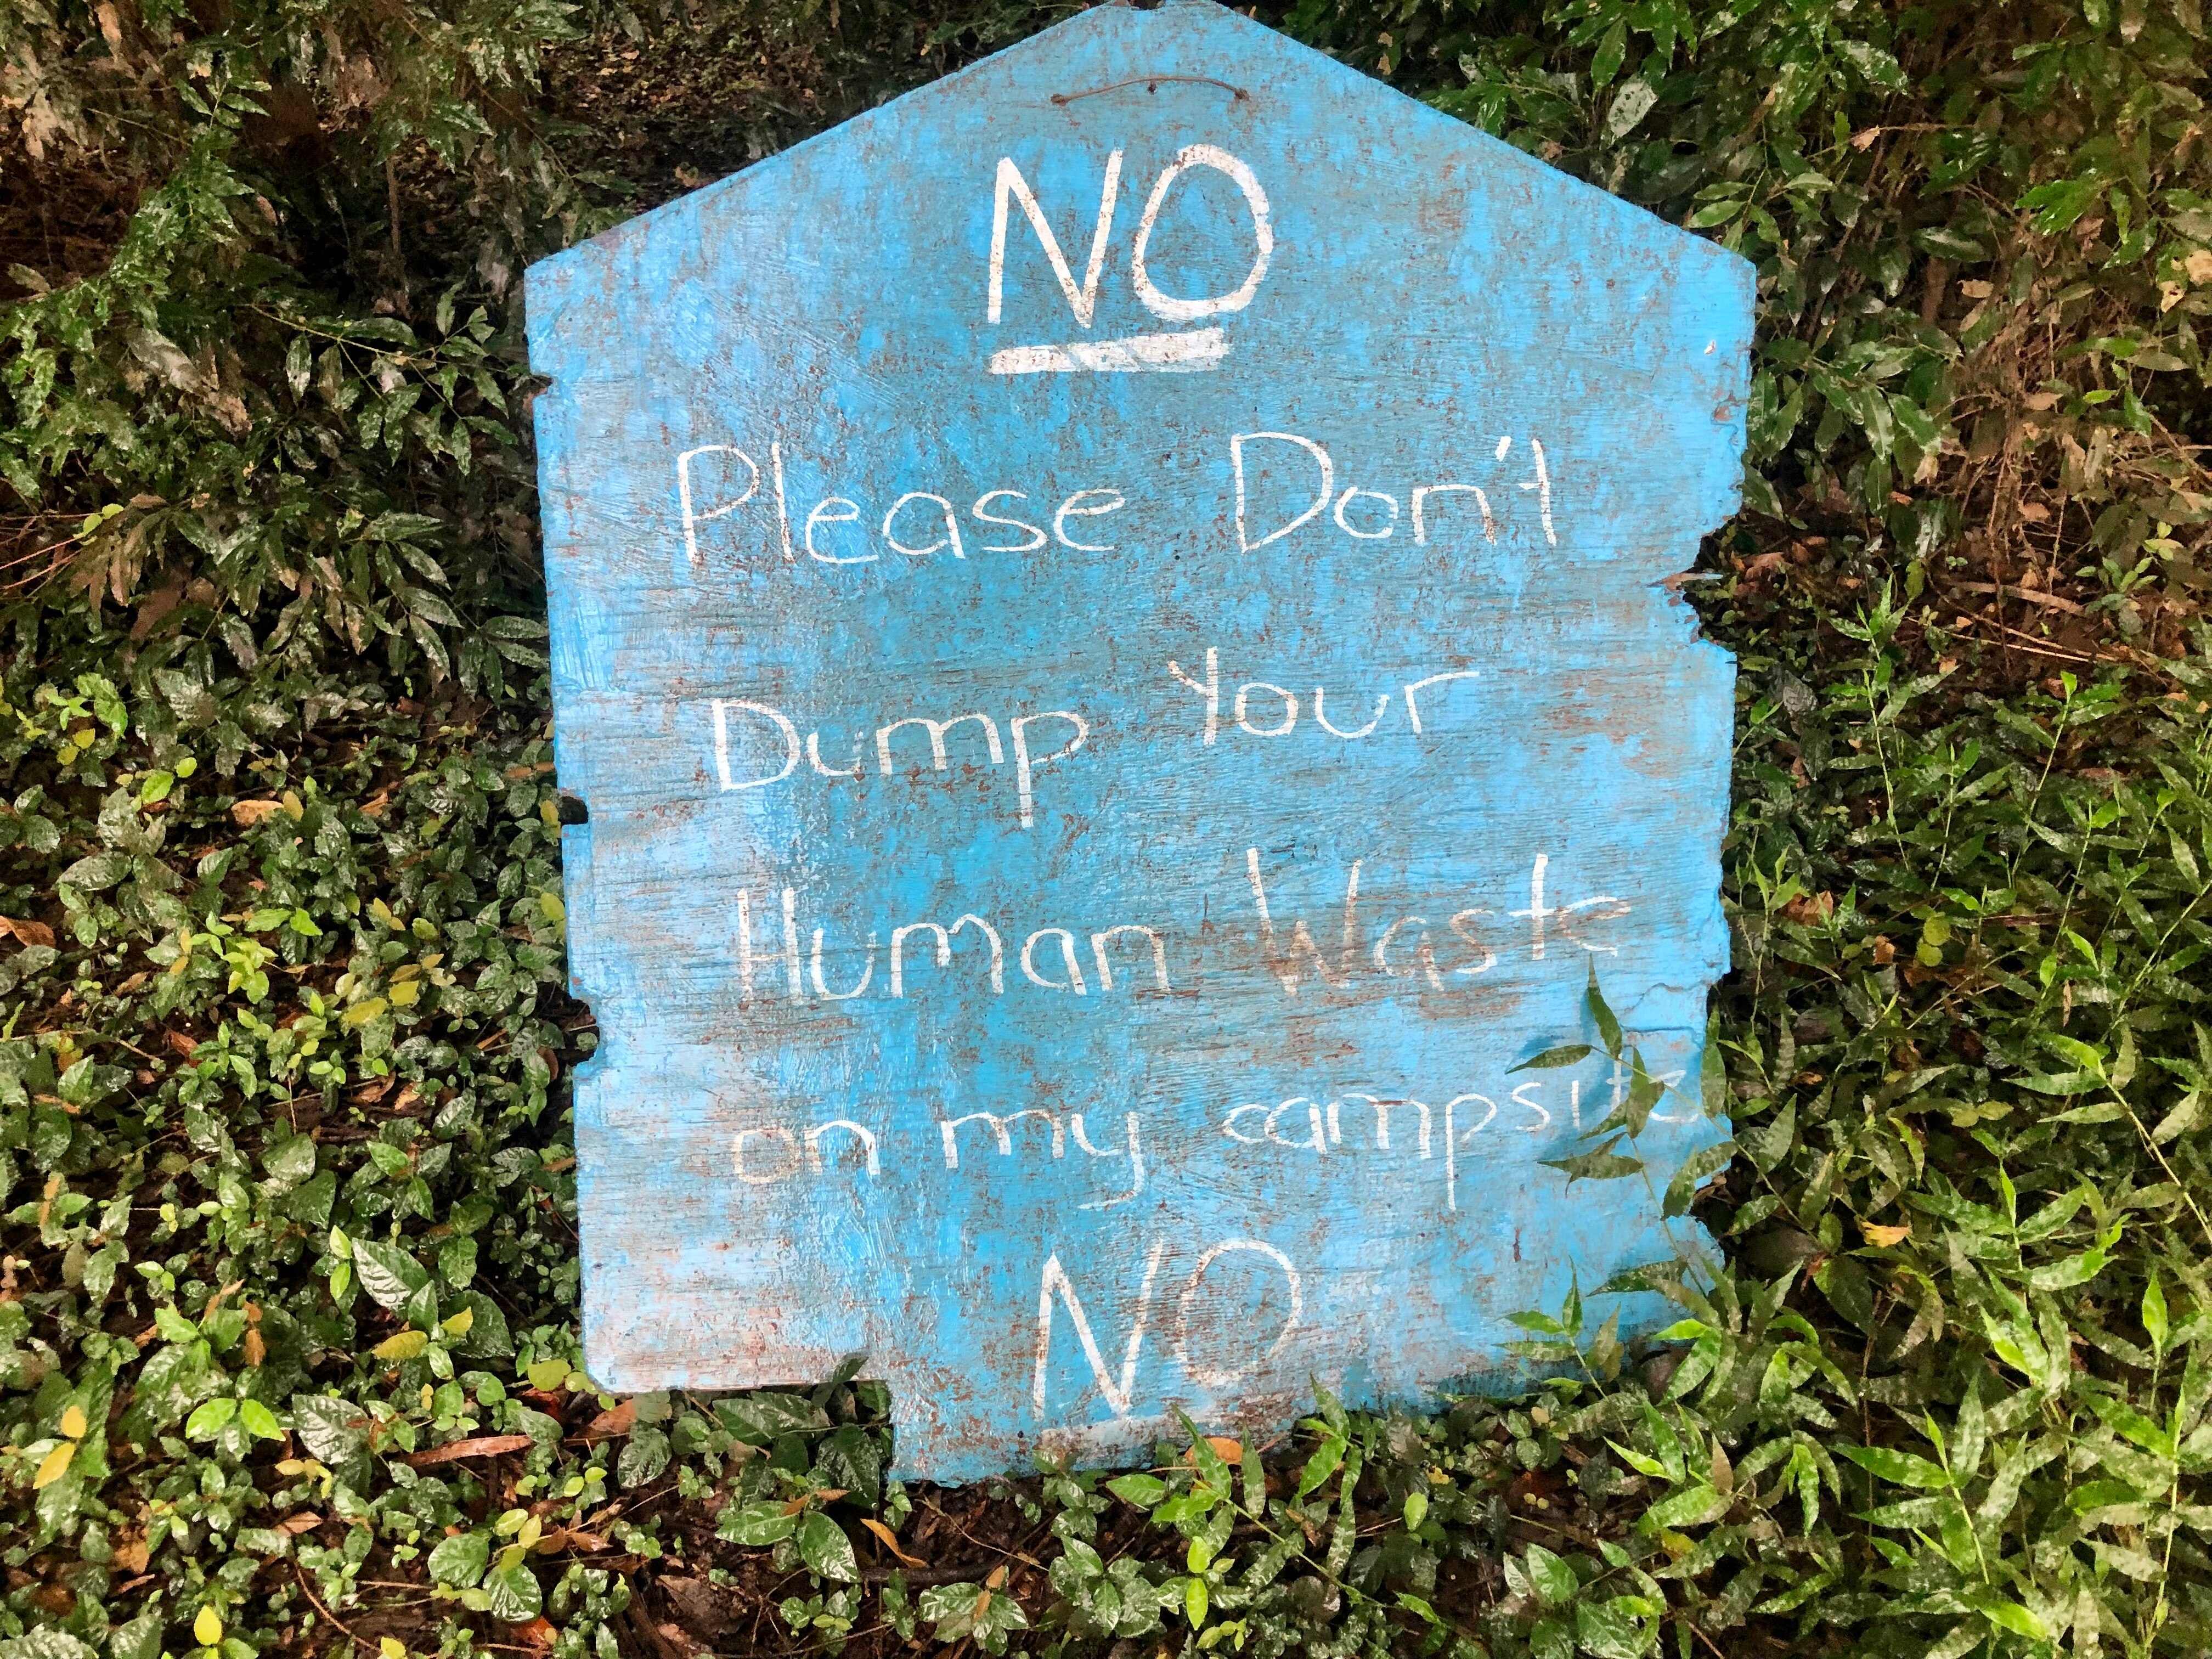 NO
Please Don't
Dump Your
Human Waste
on my campsite
NO